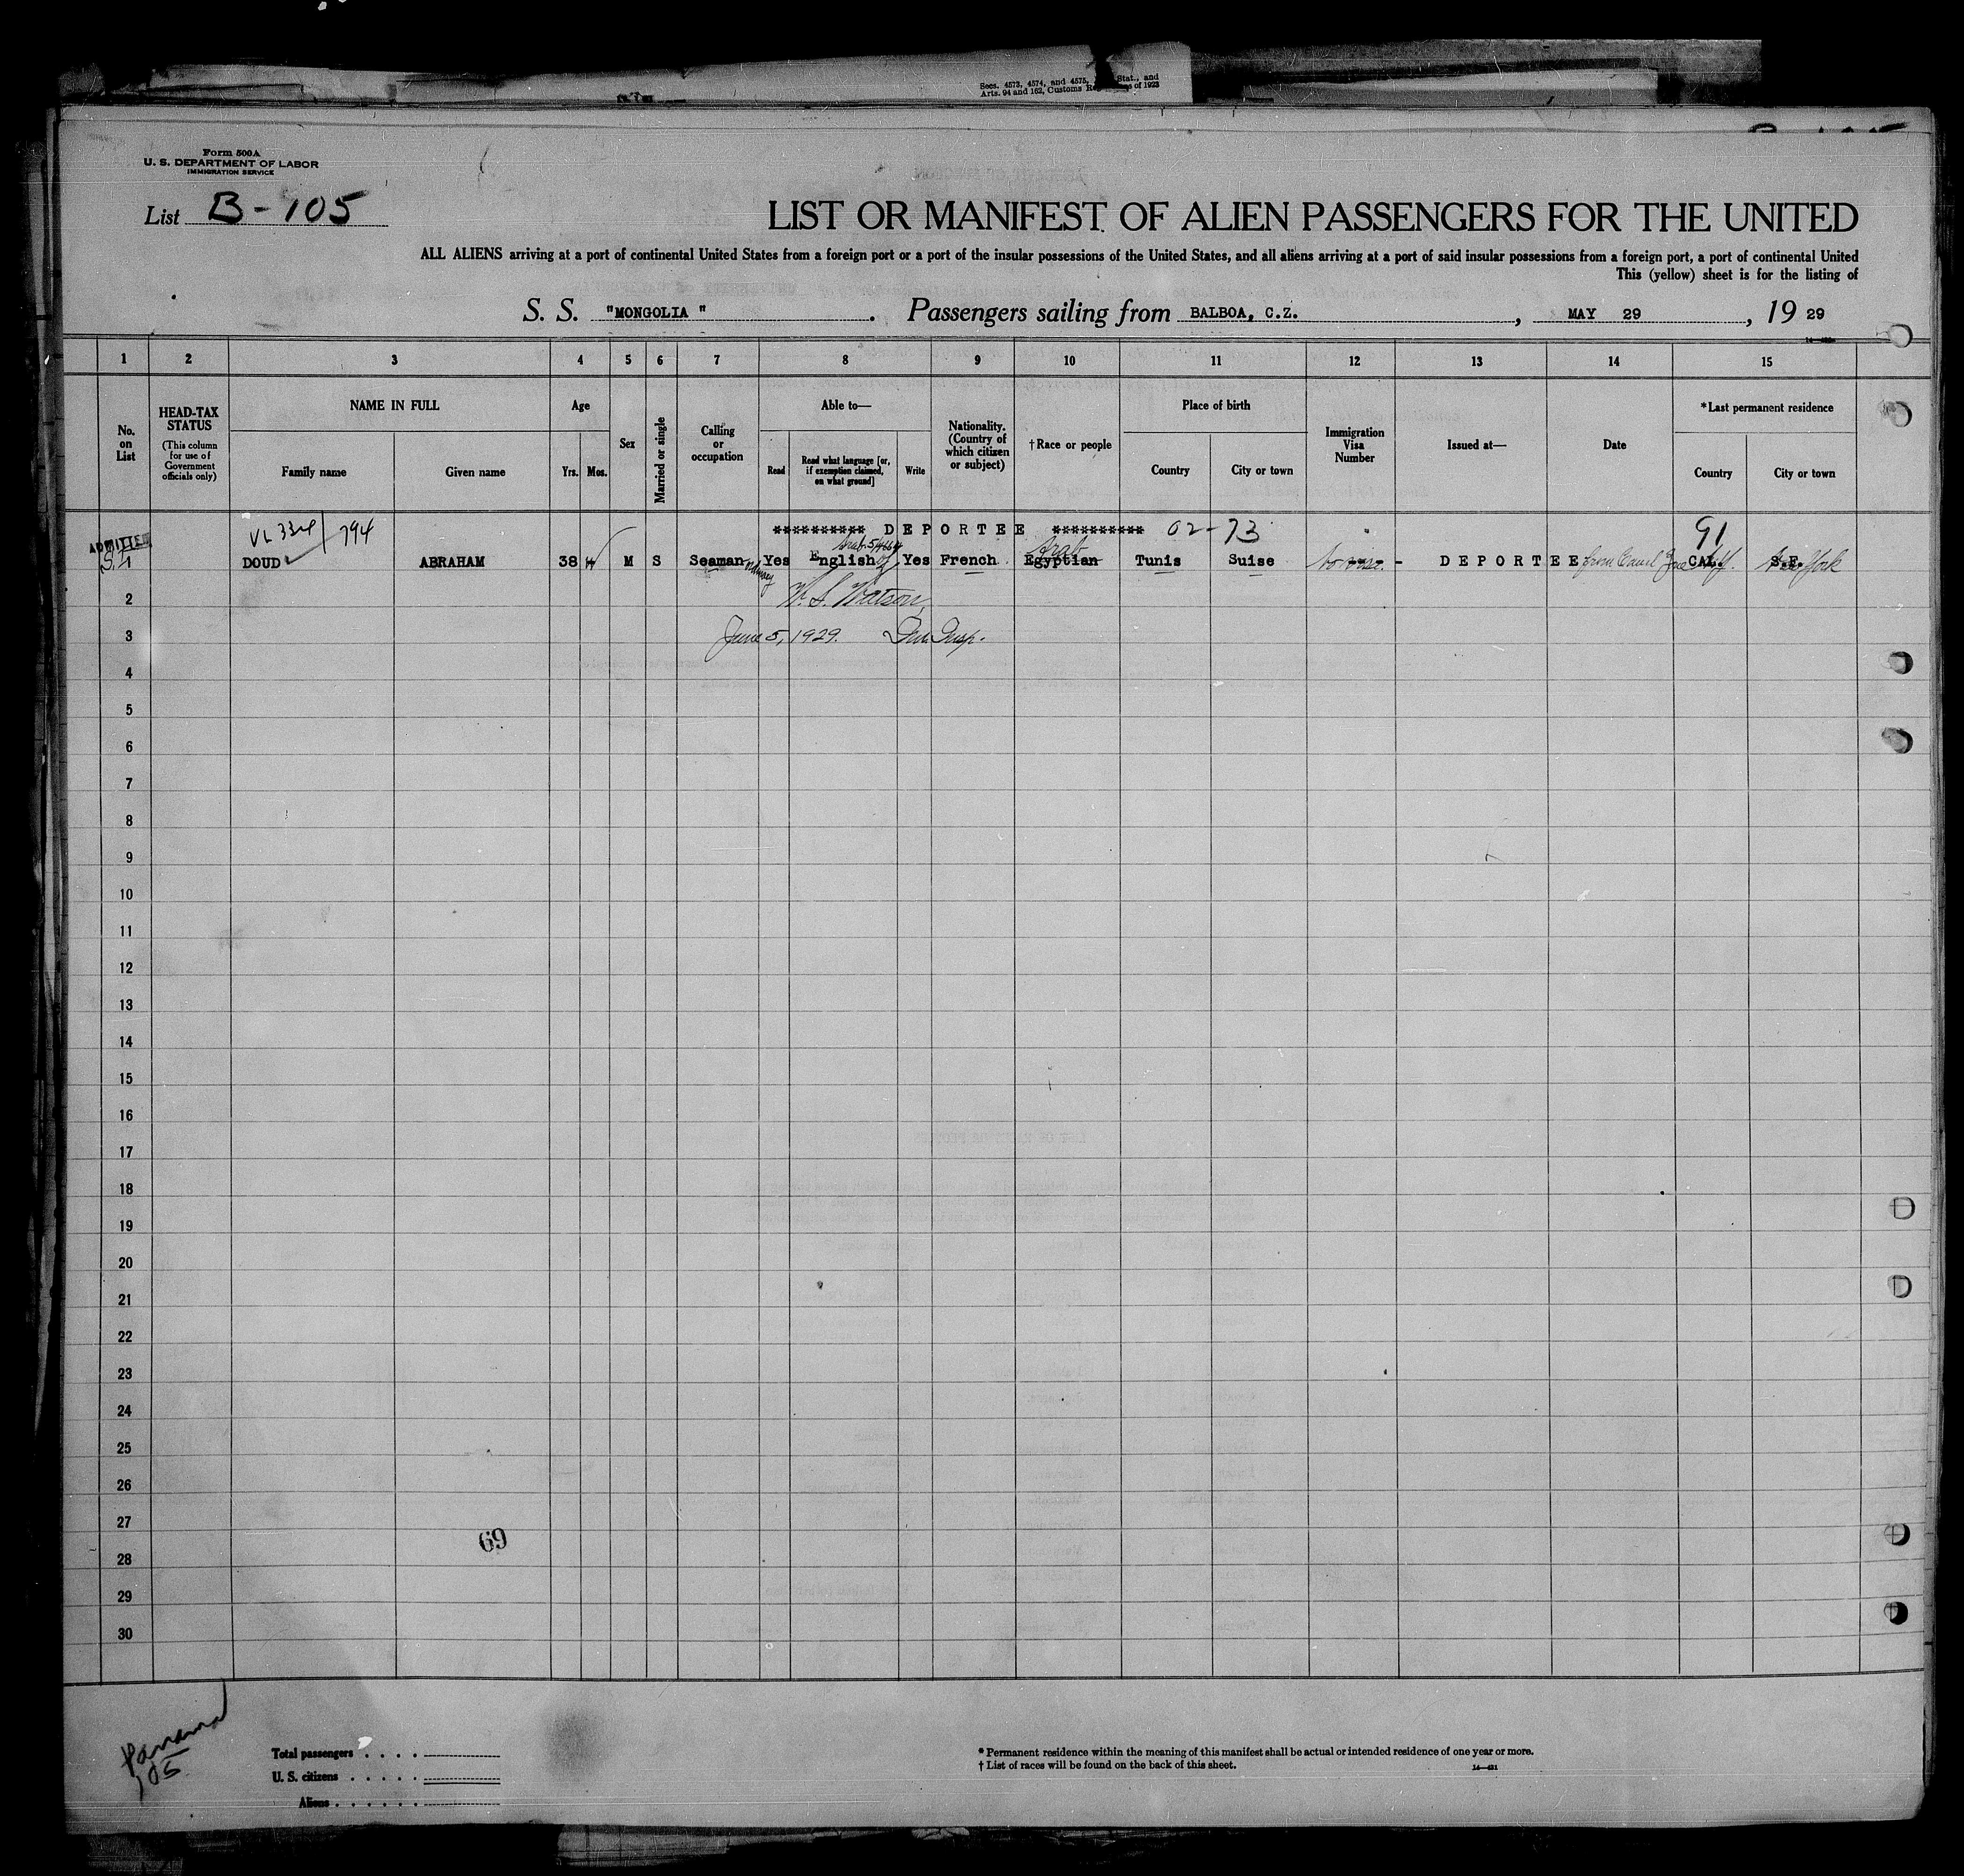 Secs. 4573, 4574, and 4575, Stat., and
Arts. 94 and 162, Customs of 1923
Form 500A
U. S. DEPARTMENT OF LABOR
IMMIGRATION SERVICE
List B-105
LIST OR MANIFEST OF ALIEN PASSENGERS FOR THE UNITED
ALL ALIENS arriving at a port of continental United States from a foreign port or a port of the insular possessions of the United States, and all aliens arriving at a port of said insular possessions from a foreign port, a port of continental United
This (yellow) sheet is for the listing of
S. S. "MONGOLIA ". Passengers sailing from BALBOA, C.Z., MAY 29, 19 29
1 2 3 4 5 6 7 8 9 10 11 12 13 14 15
No. on List
HEAD-TAX STATUS
(This column for use of Government officials only)
NAME IN FULL
Family name
Given name
Age
Yrs. Mos.
Sex
Married or single
Calling or occupation
Able to—
Read
Read what language [or, if exemption claimed, on what ground]
Write
Nationality. (Country of which citizen or subject)
†Race or people
Place of birth
Country
City or town
Immigration Visa Number
Issued at—
Date
*Last permanent residence
Country
City or town
VL 334/794
********** D E P O R T E E ********** 02-73 91
ADMITTED
Arab
DOUD ABRAHAM 38 M S Seaman Yes English Yes French Egyptian Tunis Suise No vise. - D E P O R T E E from Canal Zone CAL. S.F. New York
2 W. S. Watson,
3 June 5, 1929. Imm. Insp.
4
5
6
7
8
9
10
11
12
13
14
15
16
17
18
19
20
21
22
23
24
25
26
27
69
28
29
30
Panama
105
Total passengers . . . .
U. S. citizens . . . . .
Aliens . . . . . .
* Permanent residence within the meaning of this manifest shall be actual or intended residence of one year or more.
† List of races will be found on the back of this sheet.